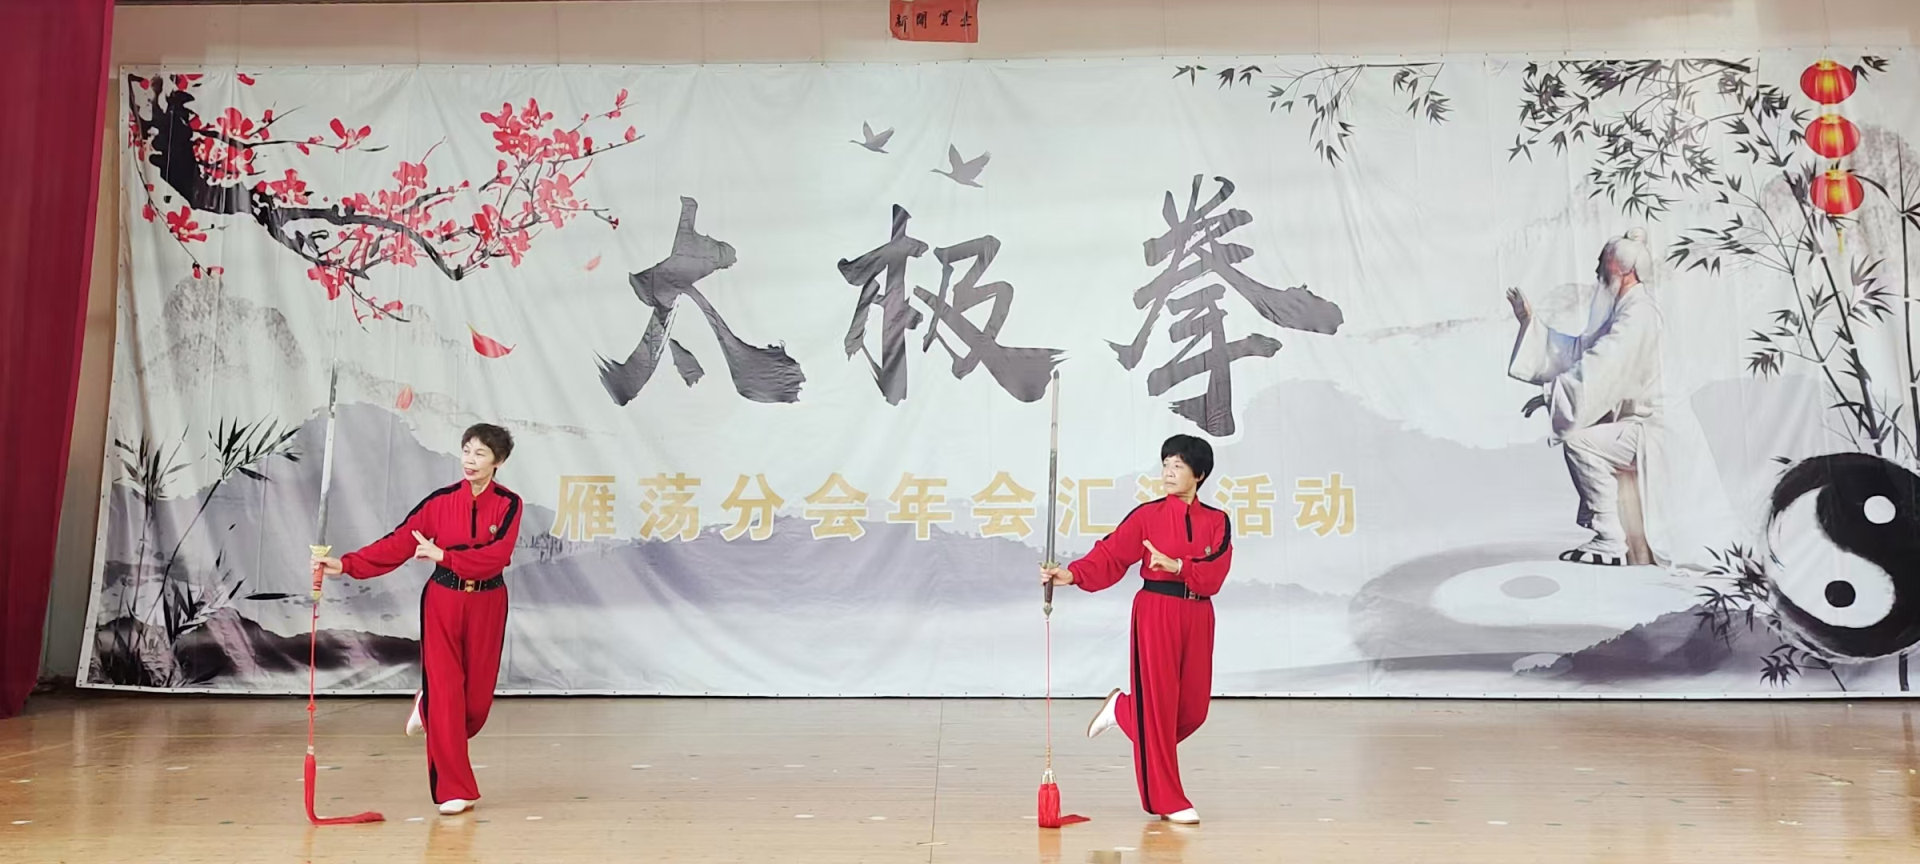 太极拳
雁荡分会年会汇 活动